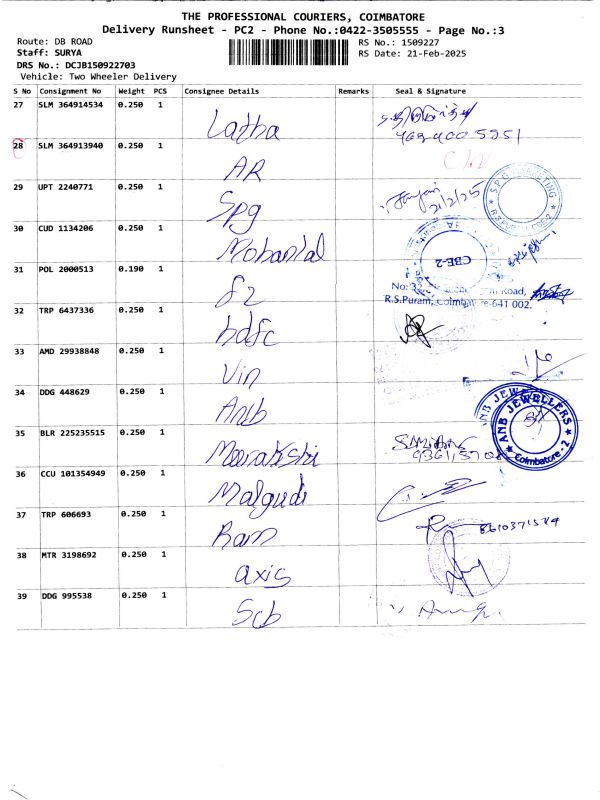 THE PROFESSIONAL COURIERS, COIMBATORE
Delivery Runsheet - PC2 - Phone No.:0422-3505555 - Page No.:3
Route: DB ROAD
RS No.: 1509227
Staff: SURYA
RS Date: 21-Feb-2025
DRS No.: DCJB150922703
Vehicle: Two Wheeler Delivery
S No Consignment No Weight PCS Consignee Details Remarks Seal & Signature
27 SLM 364914534 0.250 1 Latha
28 SLM 364913940 0.250 1 AR
29 UPT 2240771 0.250 1 Spg 21/2/25
S.P.G
R.S.PURAM, CBE-2
30 CUD 1134206 0.250 1 Mohanlal
CBE-2
31 POL 2000513 0.190 1 f2
Road,
R.S.Puram, Coimbatore-641 002.
32 TRP 6437336 0.250 1 hdfc
33 AMD 29938848 0.250 1 Vin
34 DDG 448629 0.250 1 Anb
ANB JEWELLERS
Coimbatore - 2
35 BLR 225235515 0.250 1 Meenakshi
36 CCU 101354949 0.250 1 Malgudi
37 TRP 606693 0.250 1 Ram
38 MTR 3198692 0.250 1 axis
39 DDG 995538 0.250 1 Scb